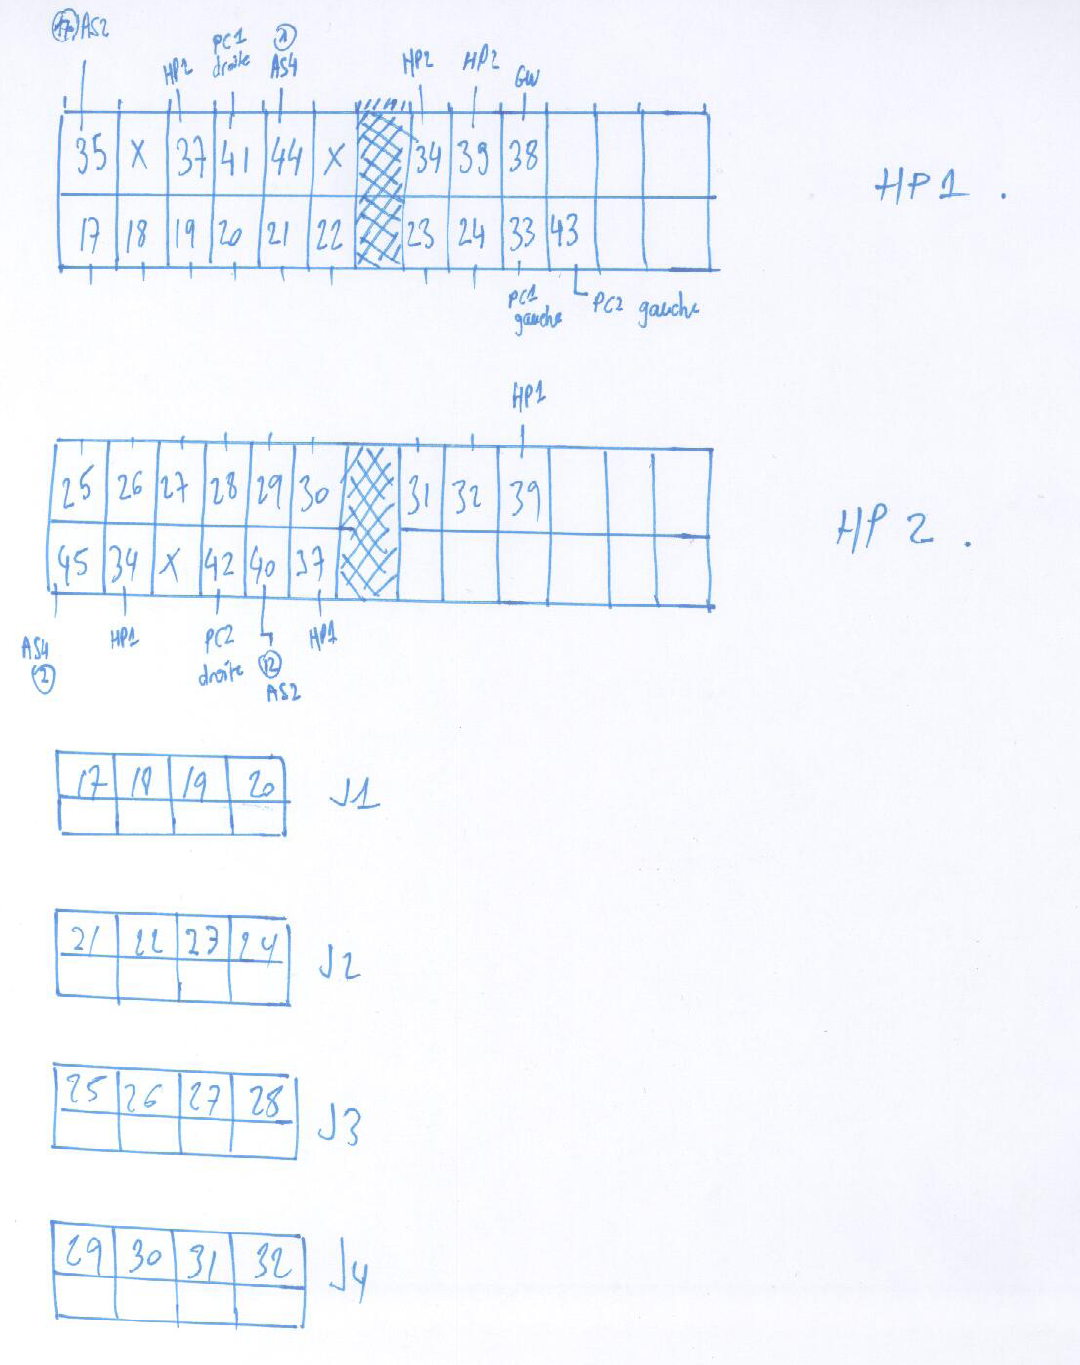 17 AS2
HP2
PC1
droite
1
AS4
HP2
HP2
GW
35 X 37 41 44 X 34 39 38
17 18 19 20 21 22 23 24 33 43
HP1.
PC1
gauche
PC2 gauche
HP1
25 26 27 28 29 30 31 32 39
45 34 X 42 40 37
HP2.
AS4
2
HP1
PC2
droite
12
AS2
HP1
17 18 19 20
J1
21 22 23 24
J2
25 26 27 28
J3
29 30 31 32
J4